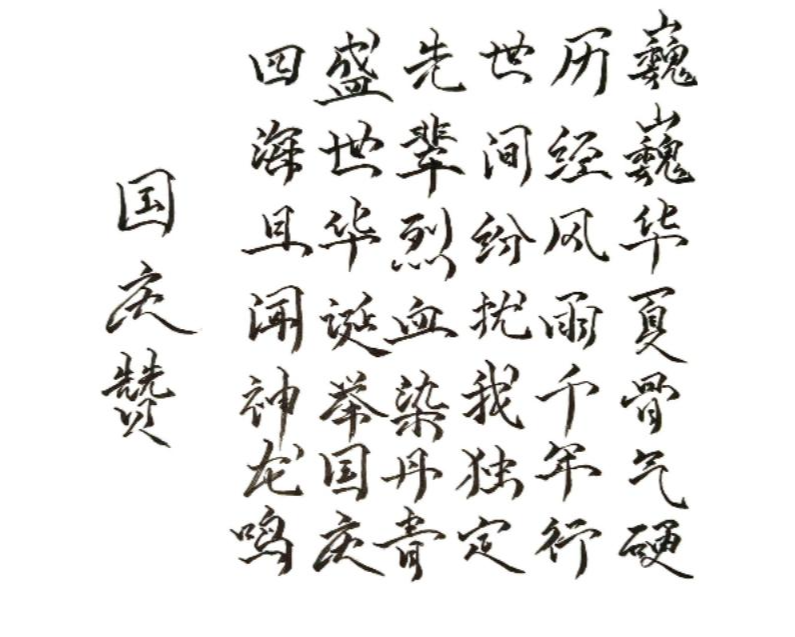 巍巍华夏骨气硬
历经风雨千年行
世间纷扰我独定
先辈烈血染丹青
盛世华诞举国庆
四海且闻神龙鸣
国庆赞